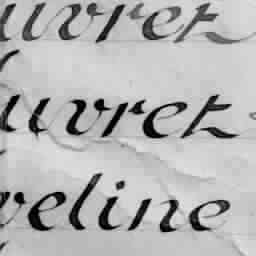 uvret
uvret
veline